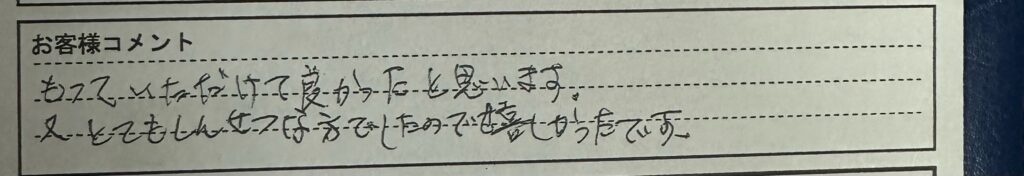 お客様コメント
もっていただけて良かったと思います。
又とてもしんせつな方でしたので嬉しかったです。